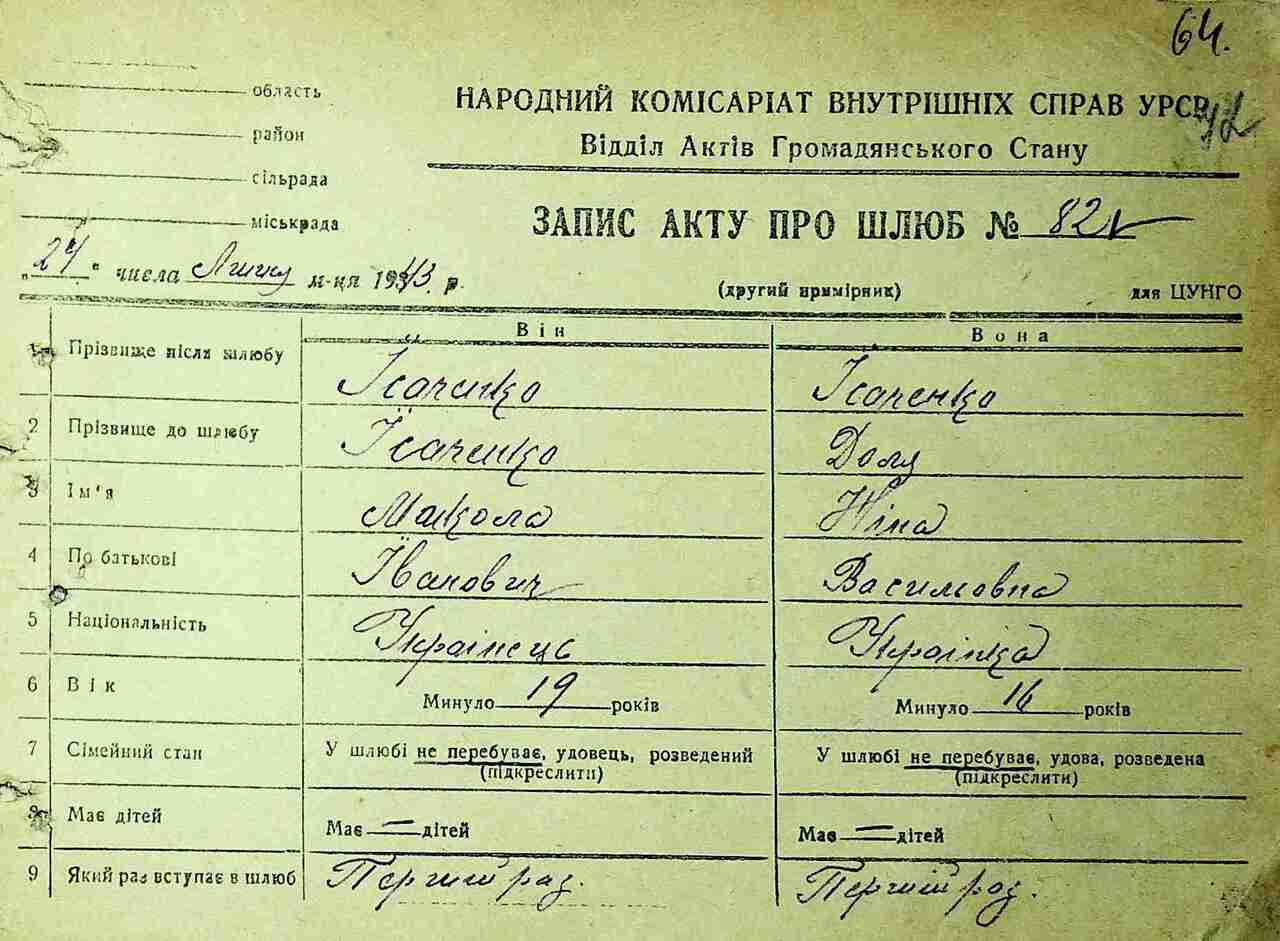 64.
область
район
сільрада
міськрада
НАРОДНИЙ КОМІСАРІАТ ВНУТРІШНІХ СПРАВ УРСР
Відділ Актів Громадянського Стану
ЗАПИС АКТУ ПРО ШЛЮБ № 82
„24“ числа Липня м-ця 1943 р.
(другий примірник) для ЦУНГО
Він Вона
1 Прізвище після шлюбу Ісаченко Ісаченко
2 Прізвище до шлюбу Ісаченко Доля
3 Ім'я Микола Ніна
4 По батькові Іванович Василовна
5 Національність Українець Українка
6 Вік Минуло 19 років Минуло 16 років
7 Сімейний стан У шлюбі не перебуває, удовець, розведений У шлюбі не перебуває, удова, розведена
(підкреслити) (підкреслити)
8 Має дітей Має — дітей Має — дітей
9 Який раз вступає в шлюб Перший раз. Перший раз.